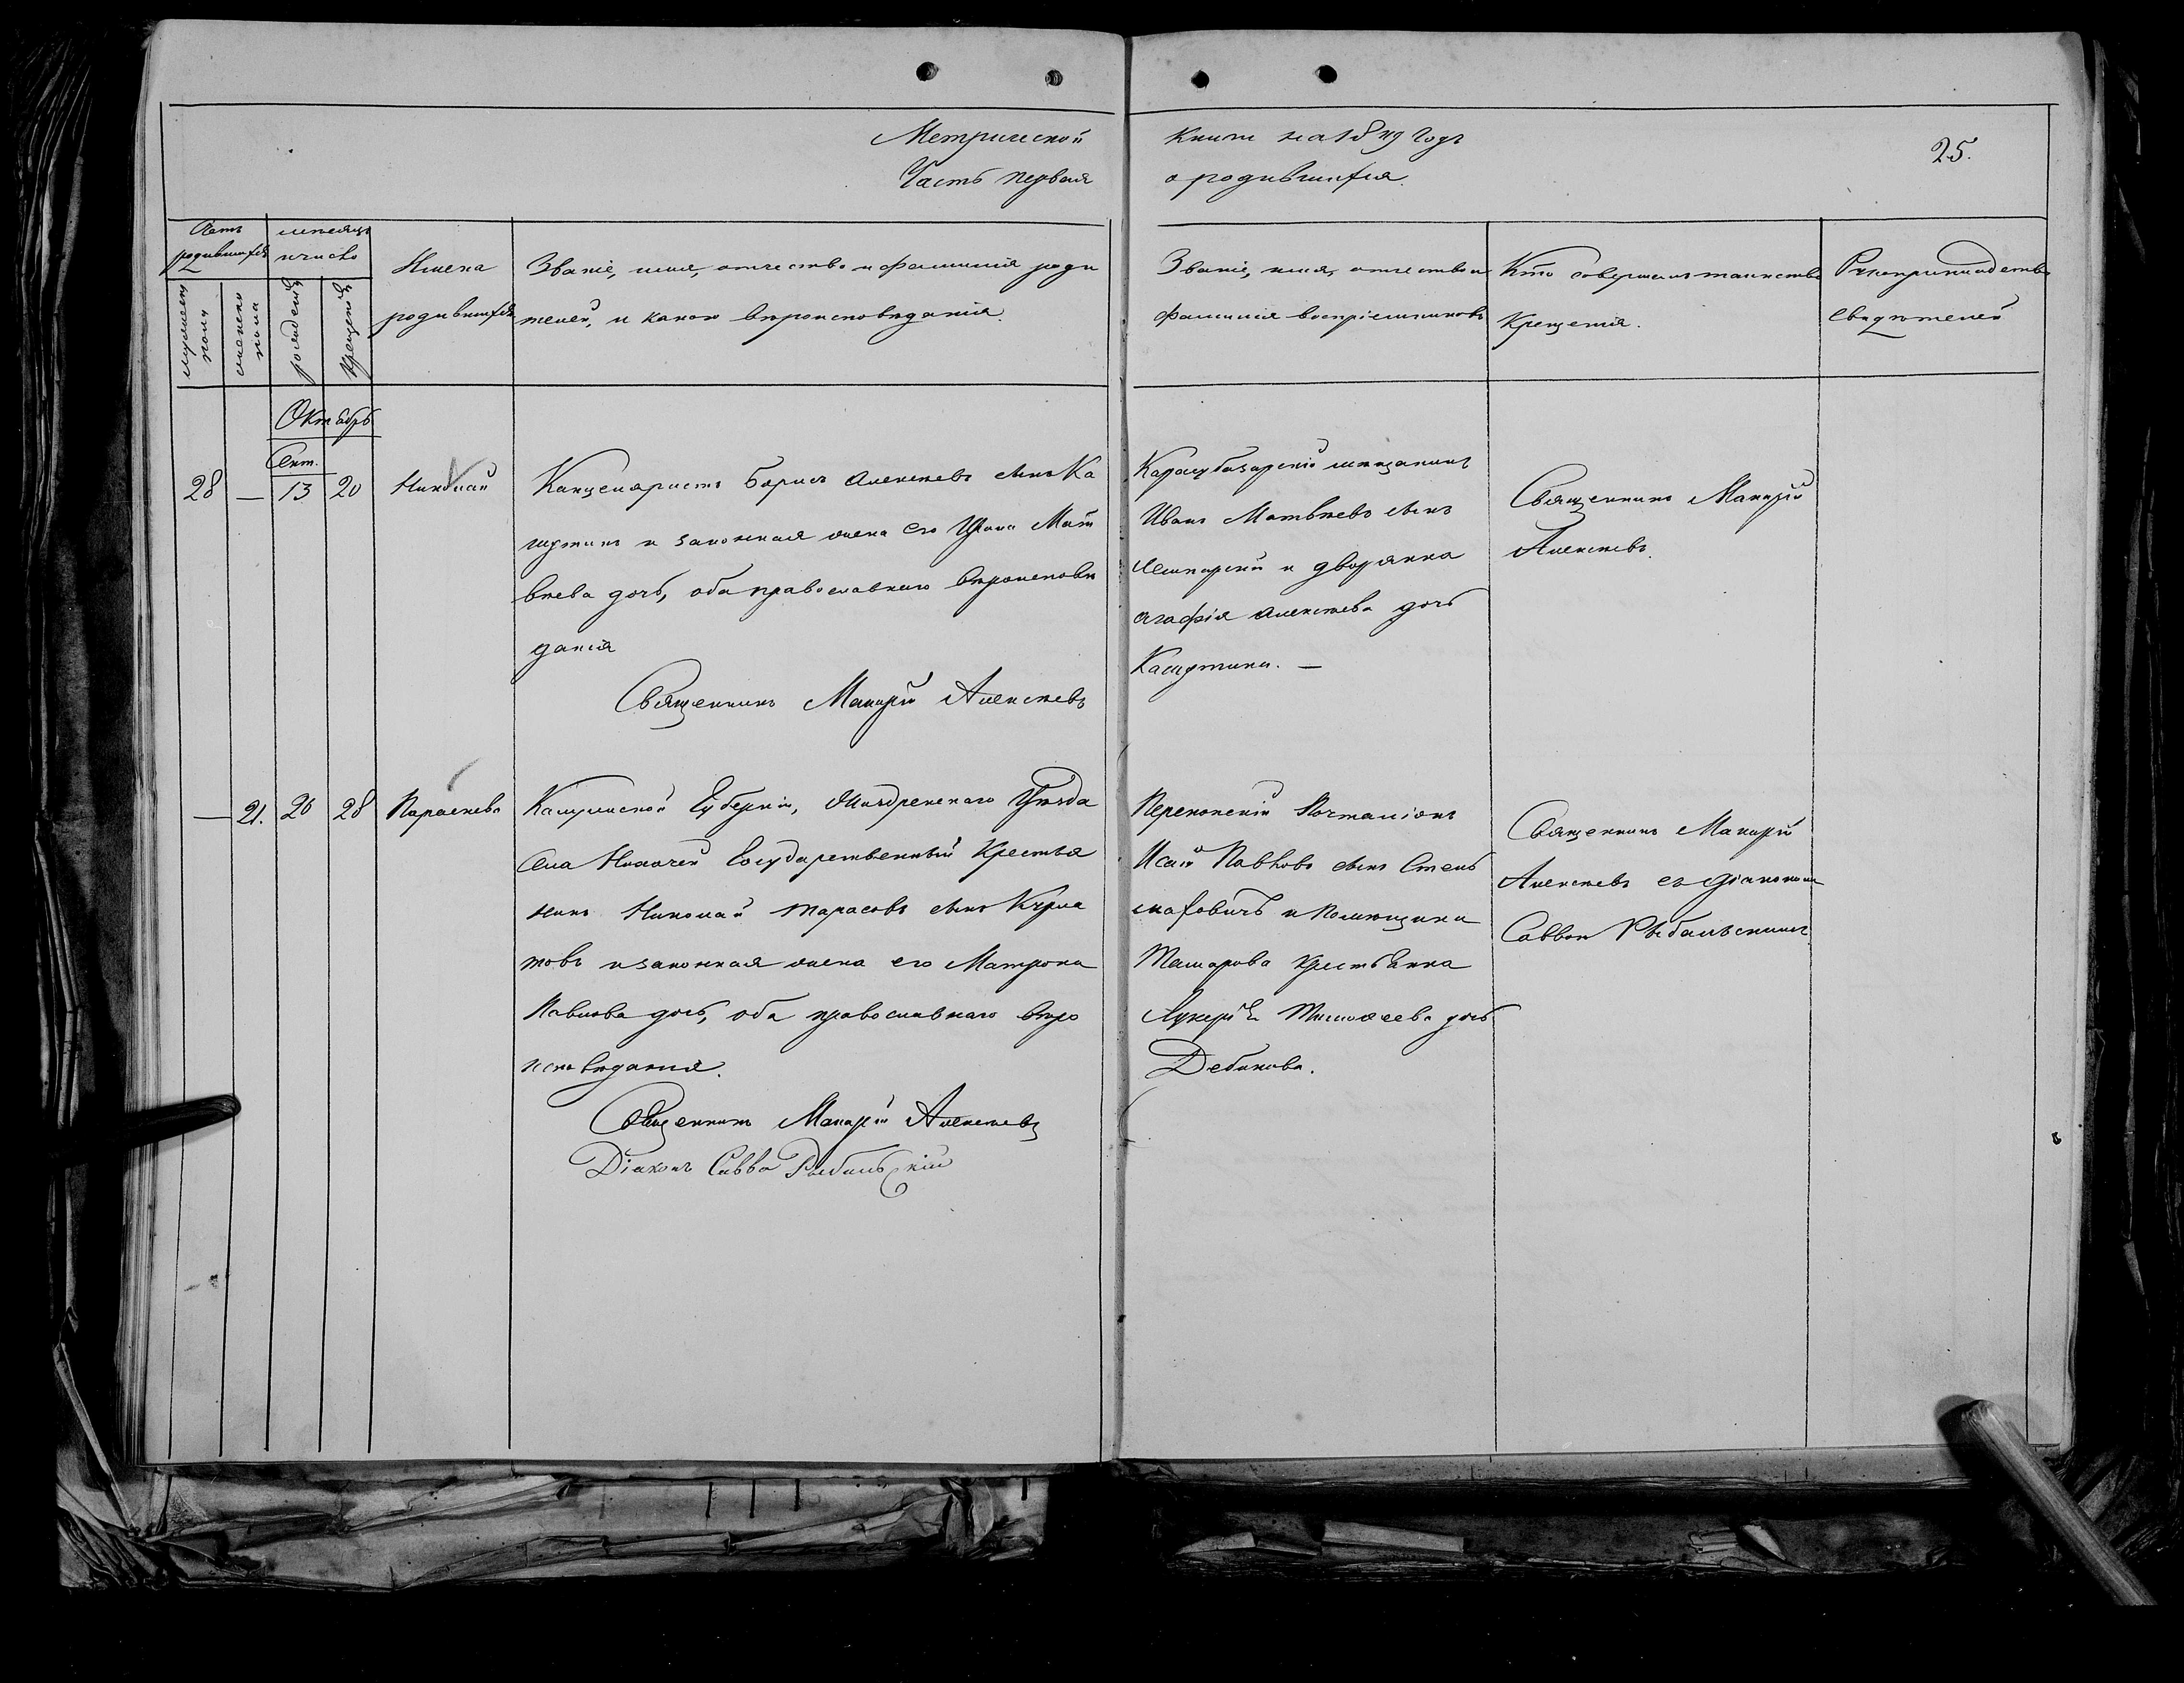 Метрической
Часть первая
Книги на 1849 годъ
о родившихся.
25.
Счетъ
родившихся
мѣсяцъ
и число
мужеска
пола
женска
пола
рожденія
крещенія
Имена
родившихся
Званіе, имя, отчество и фамилія роди
телей, и какого вѣроисповѣданія.
Званіе, имя, отчество и
фамилія воспріемниковъ
Кто совершалъ таинство
крещенія.
Рукоприкладство
свидѣтелей
Октябрь
Сент.
28 — 13 20 Николай
Канцеляристъ Борисъ Алексѣевъ сынъ Ка
шутинъ и законная жена его Ирина Мат
вѣева дочь, оба православнаго вѣроисповѣ
данія
Священникъ Макарій Алексѣевъ
Карасубазарскій мѣщанинъ
Иванъ Матвѣевъ сынъ
и дворянка
Агафія Алексѣева дочь
Кашутина. —
Священникъ Макарій
Алексѣевъ.
— 21. 26 28 Параскева
Калужской Губерніи, Жиздренскаго Уѣзда
Села Государственный Крестья
нинъ Николай Тарасовъ сынъ
товъ и законная жена его Матрона
Павлова дочь, оба православнаго вѣро
исповѣданія.
Священникъ Макарій Алексѣевъ
Діаконъ Савва Рыбальскій
Перекопскій Почталіонъ
Исай Павловъ сынъ
и помѣщика
крестьянка
Лукерія Тимофеева дочь
Священникъ Макарій
Алексѣевъ съ діакономъ
Саввою Рыбальскимъ